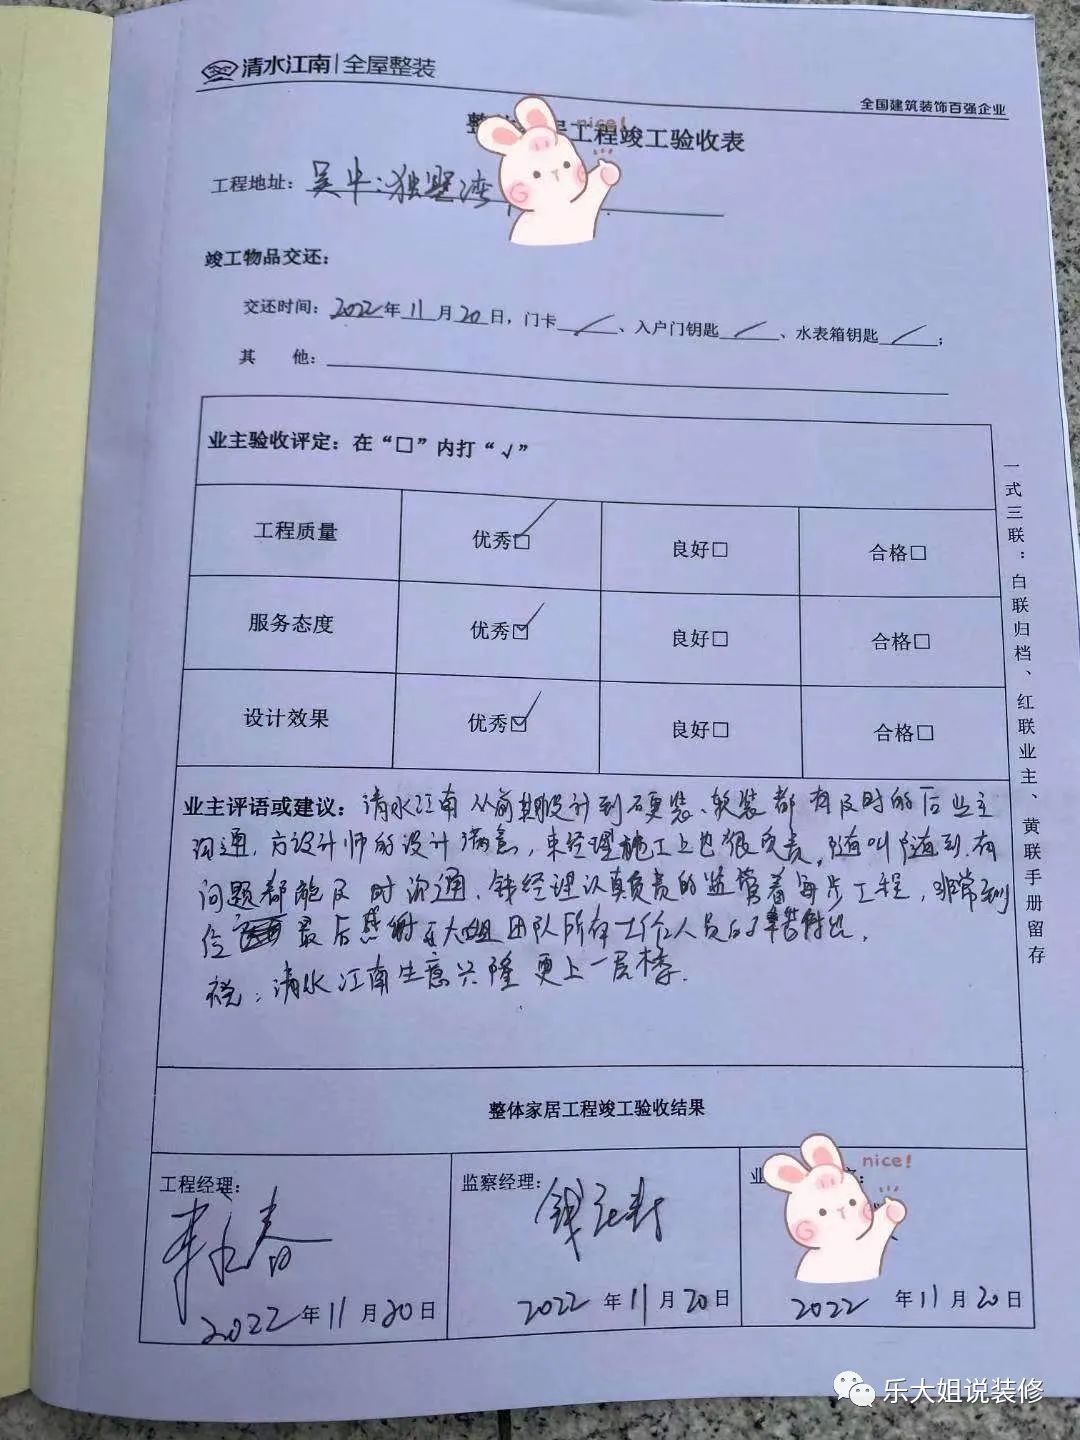 清水江南|全屋整装
全国建筑装饰百强企业
整 居工程竣工验收表
nice!
工程地址：吴中：独墅湾
竣工物品交还：
交还时间：2022年11月20日，门卡／、入户门钥匙／、水表箱钥匙／；
其 他：
业主验收评定：在“□”内打“√”
工程质量 优秀☑ 良好□ 合格□
服务态度 优秀☑ 良好□ 合格□
设计效果 优秀☑ 良好□ 合格□
一式三联：白联归档、红联业主、黄联手册留存
业主评语或建议：清水江南从前期设计到硬装、软装都有及时的与业主
沟通，方设计师的设计满意，来经理施工上也很负责，随叫随到，有
问题都能及时沟通，钱经理认真负责的监管着每步工程，非常到
位 最后感谢 大姐团队所有工作人员的辛苦付出，
祝：清水江南生意兴隆更上一层楼.
整体家居工程竣工验收结果
工程经理：
监察经理：
业
nice!
2022年11月20日
2022年11月20日
2022年11月20日
乐大姐说装修